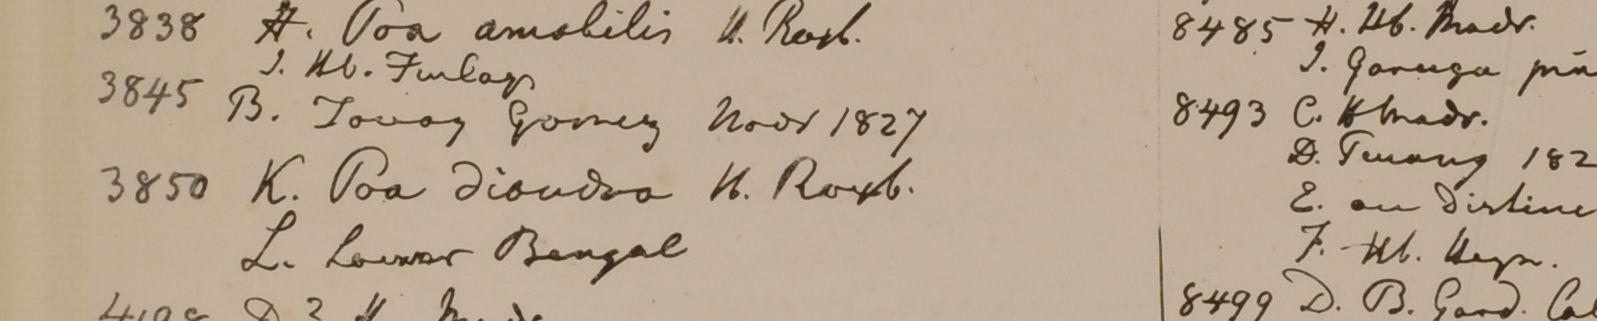 3838 H. Poa amabilis H. Roxb.
I. Hb. Finlay
3845 B. Tavoy Gomez Novr 1827
3850 K. Poa diandra H. Roxb.
L. Lower Bengal
8485 H. Hb. Madr.
I. Garuga pin
8493 C. H Madr.
D. 182
E. an distinc
F. Hb. Heyn.
8499 D. B. Gard. Cal